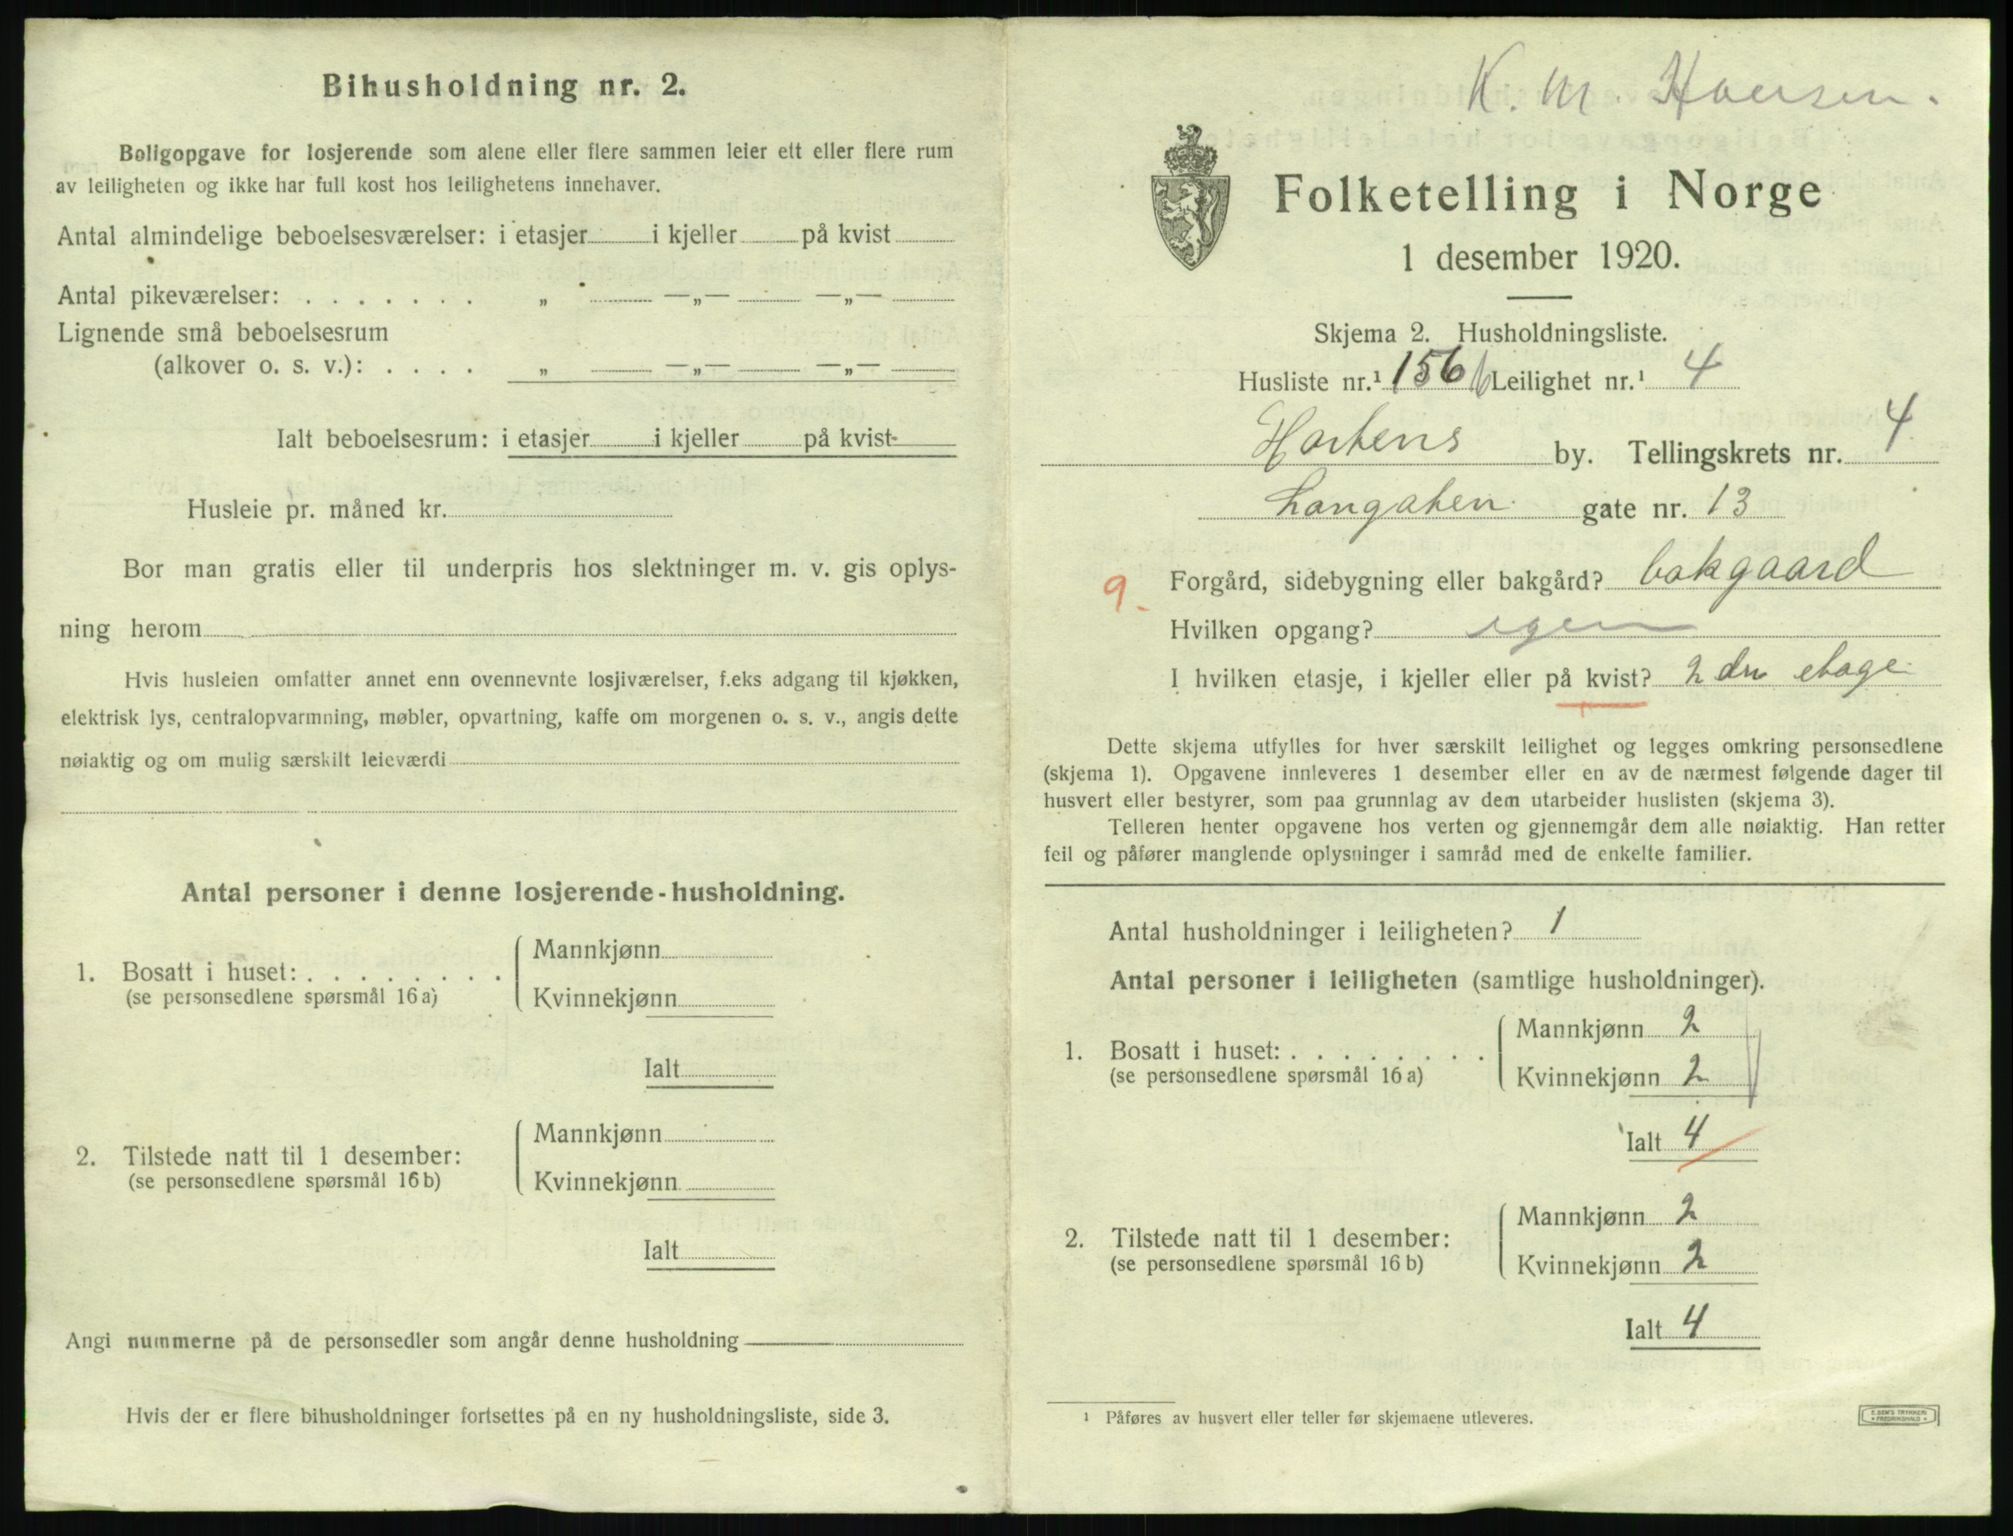 Bihusholdning nr. 2.
Boligopgave for losjerende som alene eller flere sammen leier ett eller flere rum
av leiligheten og ikke har full kost hos leilighetens innehaver.
Antal almindelige beboelsesværelser: i etasjer i kjeller på kvist
Antal pikeværelser: . . . . . . . „ —„— —„—
Lignende små beboelsesrum
(alkover o. s. v.): . . . . „ —„— —„—
Ialt beboelsesrum: i etasjer i kjeller på kvist
Husleie pr. måned kr.
Bor man gratis eller til underpris hos slektninger m. v. gis oplys-
ning herom
Hvis husleien omfatter annet enn ovennevnte losjiværelser, f.eks adgang til kjøkken,
elektrisk lys, centralopvarmning, møbler, opvartning, kaffe om morgenen o. s. v., angis dette
nøiaktig og om mulig særskilt leieværdi
Antal personer i denne losjerende-husholdning.
1. Bosatt i huset: . . . . . . . .
(se personsedlene spørsmål 16 a)
Mannkjønn
Kvinnekjønn
Ialt
2. Tilstede natt til 1 desember:
(se personsedlene spørsmål 16 b)
Mannkjønn
Kvinnekjønn
Ialt
Angi nummerne på de personsedler som angår denne husholdning
Hvis der er flere bihusholdninger fortsettes på en ny husholdningsliste, side 3.
K. M.
Folketelling i Norge
1 desember 1920.
Skjema 2. Husholdningsliste.
Husliste nr.¹ 156 Leilighet nr.¹ 4
Hortens by. Tellingskrets nr. 4
Langaten gate nr. 13
9. Forgård, sidebygning eller bakgård? bakgaard
Hvilken opgang? egen
I hvilken etasje, i kjeller eller på kvist? 2 den etage
Dette skjema utfylles for hver særskilt leilighet og legges omkring personsedlene
(skjema 1). Opgavene innleveres 1 desember eller en av de nærmest følgende dager til
husvert eller bestyrer, som paa grunnlag av dem utarbeider huslisten (skjema 3).
Telleren henter opgavene hos verten og gjennemgår dem alle nøiaktig. Han retter
feil og påfører manglende oplysninger i samråd med de enkelte familier.
Antal husholdninger i leiligheten? 1
Antal personer i leiligheten (samtlige husholdninger).
1. Bosatt i huset: . . . . . . . .
(se personsedlene spørsmål 16 a)
Mannkjønn 2
Kvinnekjønn 2
Ialt 4
2. Tilstede natt til 1 desember:
(se personsedlene spørsmål 16 b)
Mannkjønn 2
Kvinnekjønn 2
Ialt 4
¹ Påføres av husvert eller teller før skjemaene utleveres.
E. SEM'S TRYKKERI
FREDRIKSHALD